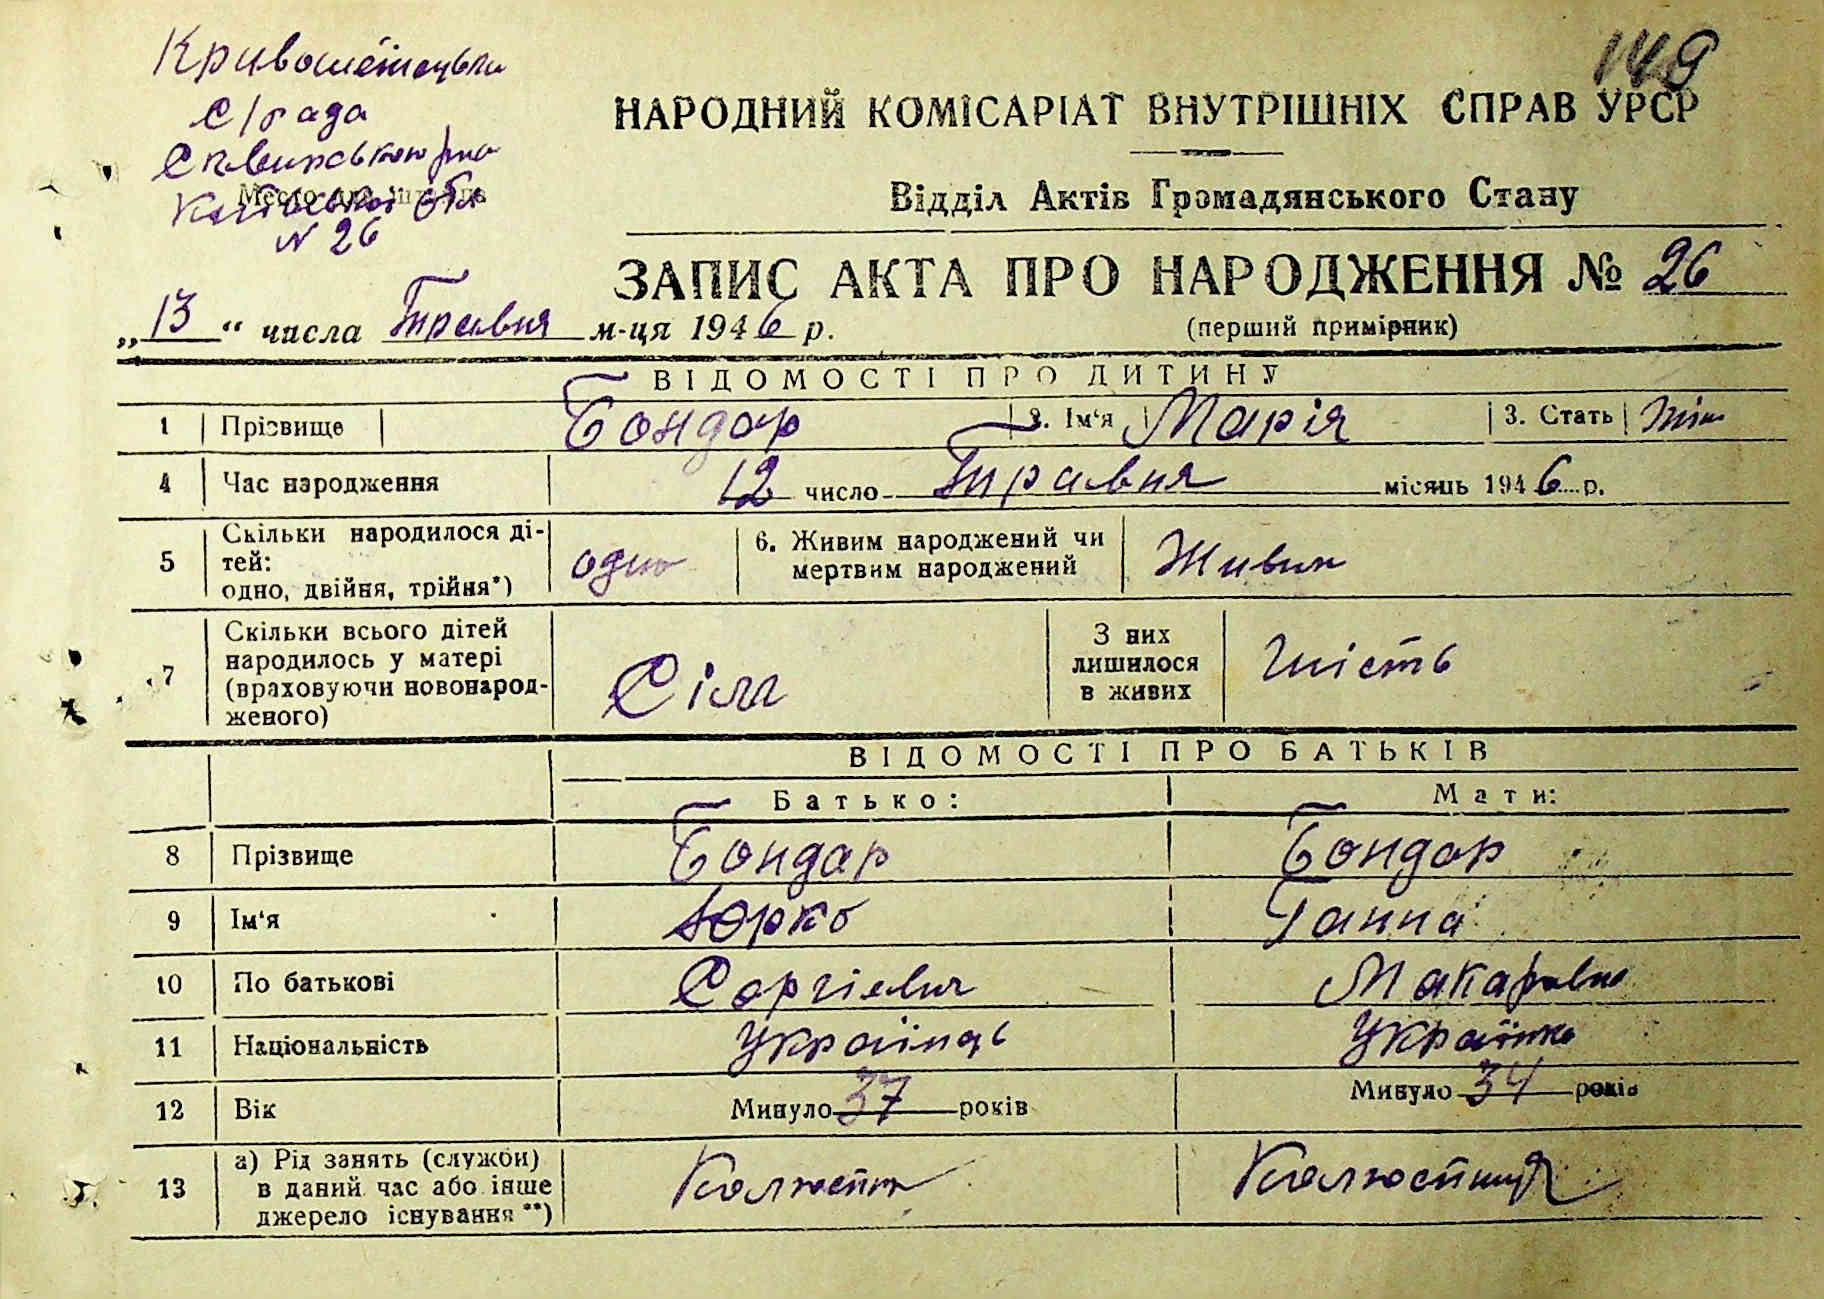 149
Кривошеїнецька
с/рада
Сквирського р-на
Київської обл
Место для штампа
N 26
НАРОДНИЙ КОМІСАРІАТ ВНУТРІШНІХ СПРАВ УРСР
Відділ Актів Громадянського Стану
ЗАПИС АКТА ПРО НАРОДЖЕННЯ № 26
„13“ числа Травня м-ця 1946 р. (перший примірник)
ВІДОМОСТІ ПРО ДИТИНУ
1 Прізвище Бондар 2. Ім'я Марія 3. Стать жін
4 Час народження 12 число Травня місяць 1946 р.
5 Скільки народилося ді-
тей:
одно, двійня, трійня*) одно 6. Живим народжений чи
мертвим народжений Живим
7 Скільки всього дітей
народилось у матері
(враховуючи новонарод-
женого) Сім З них
лишилося
в живих шість
ВІДОМОСТІ ПРО БАТЬКІВ
Батько: Мати:
8 Прізвище Бондар Бондар
9 Ім'я Юрко Ганна
10 По батькові Сергієвич Макаровна
11 Національність Українць Українка
12 Вік Минуло 37 років Минуло 34 років
13 а) Рід занять (служби)
в даний час або інше
джерело існування **) Колгоспник Колгоспниця